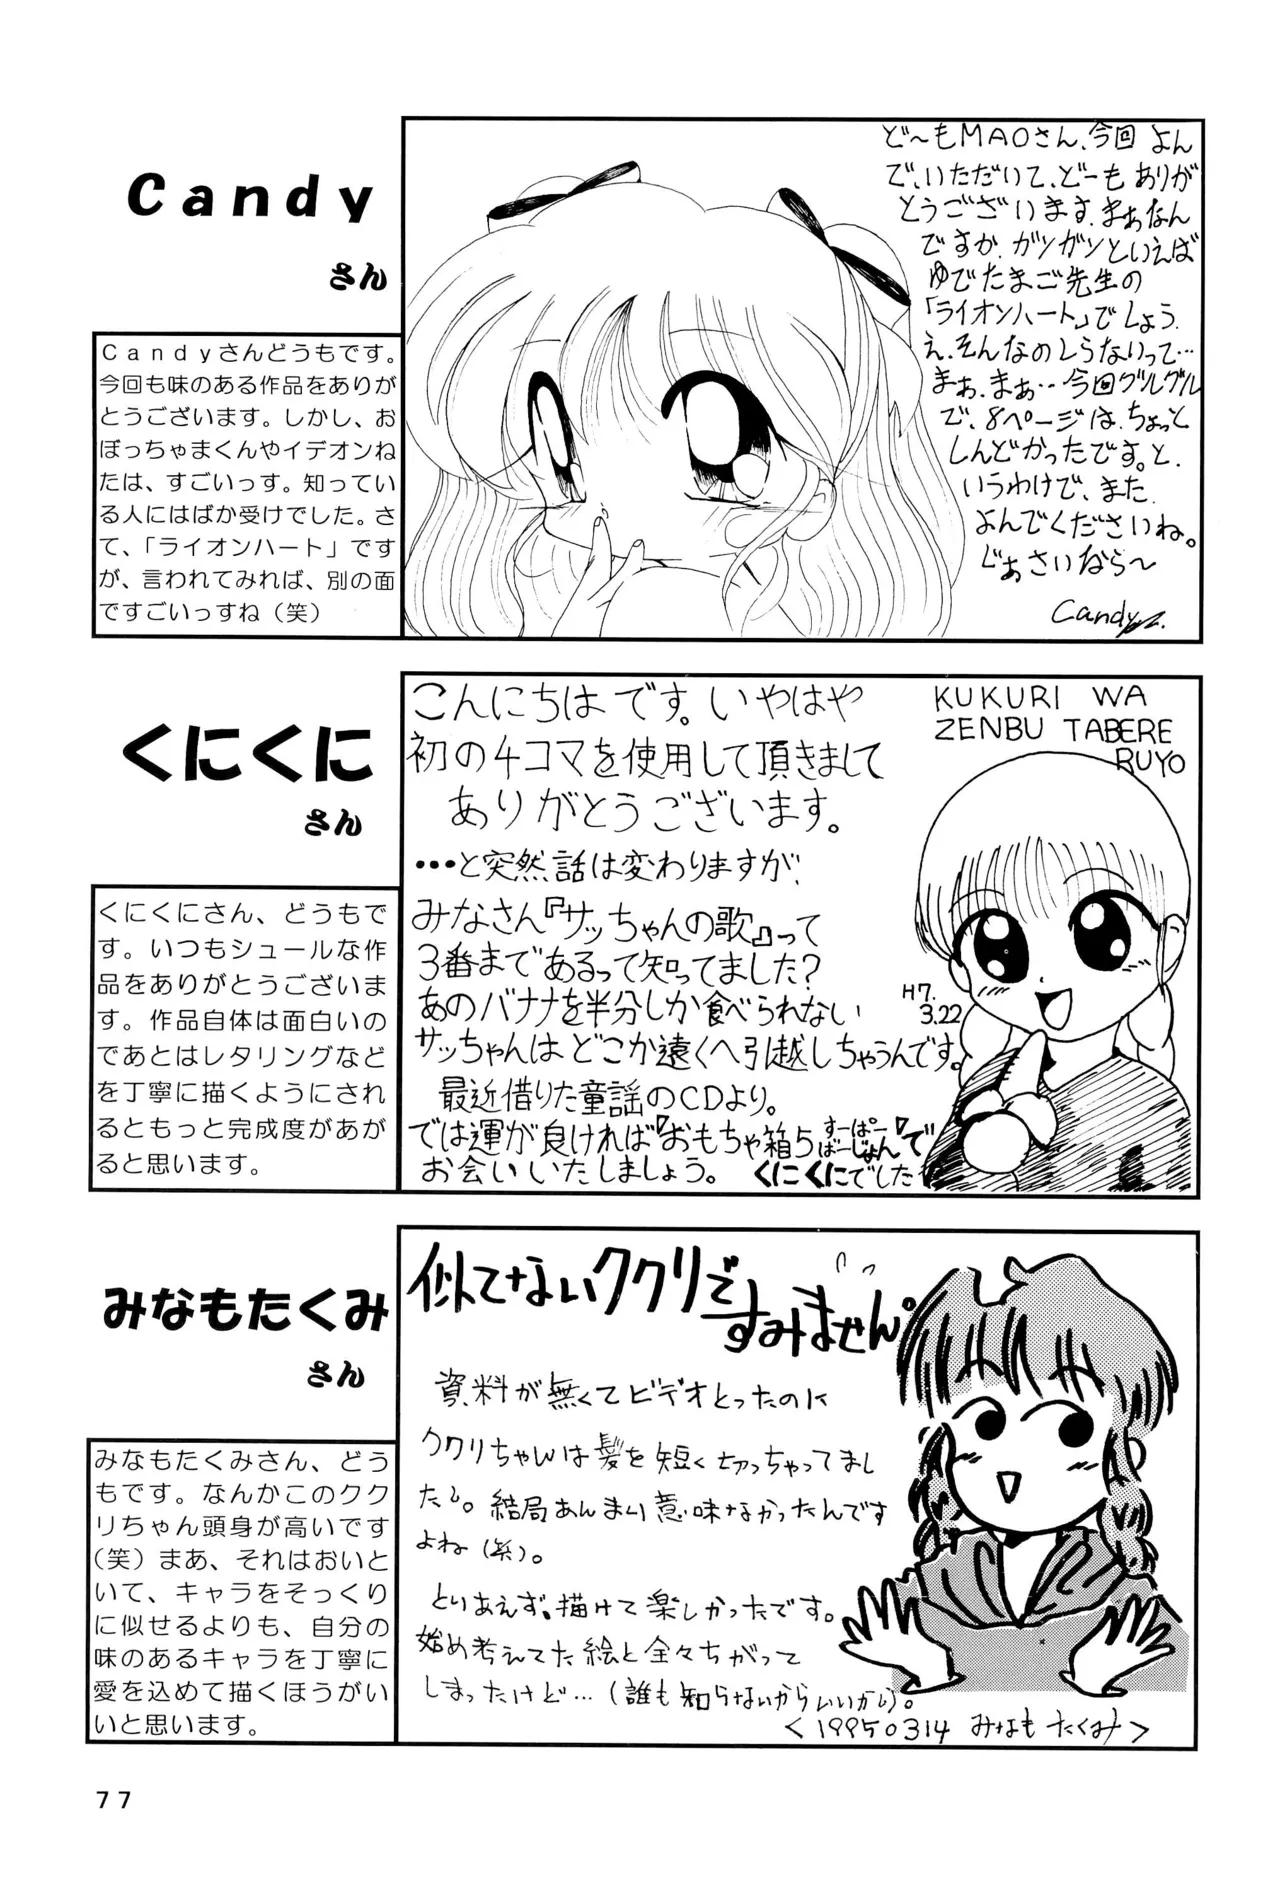 Candy
さん
Candyさんどうもです。
今回も味のある作品をありが
とうございます。しかし、お
ぼっちゃまくんやイデオンね
たは、すごいっす。知ってい
る人にはばか受けでした。さ
て、「ライオンハート」です
が、言われてみれば、別の面
ですごいっすね(笑)
ど〜もMAOさん、今回 よん
で、いただいて、どーも ありが
とうございます。まぁなん
ですか、ガンガンといえば
ゆでたまご先生の
「ライオンハート」でしょう。
え、そんなのしらないって…
まぁ、まぁ… 今回グルグル
で、8ページは、ちょっと
しんどかったです。と、
いうわけで、また、
よんでくださいね。
じぁさいなら〜
Candy
くにくに
さん
くにくにさん、どうもで
す。いつもシュールな作
品をありがとうございま
す。作品自体は面白いの
であとはレタリングなど
を丁寧に描くようにされ
るともっと完成度があが
ると思います。
こんにちは です。いやはや
初の4コマを使用して頂きまして
ありがとうございます。
・・・と突然話は変わりますが、
みなさん『サッちゃんの歌』って
3番まであるって知ってました?
あのバナナを半分しか食べられない
サッちゃんは どこか遠くへ引越しちゃうんです。
最近借りた童謡のCDより。
では運が良ければ『おもちゃ箱5すーぱーばーじょん』で
お会いいたしましょう。 くにくにでした
KUKURI WA
ZENBU TABERE
RUYO
H7.
3.22
みなもたくみ
さん
みなもたくみさん、どう
もです。なんかこのクク
リちゃん頭身が高いです
(笑)まあ、それはおいと
いて、キャラをそっくり
に似せるよりも、自分の
味のあるキャラを丁寧に
愛を込めて描くほうがい
いと思います。
似てないククリで
すみません。
資料が無くてビデオとったのに
ククリちゃんは髪を短く切っちゃってまし
た。結局あんまり意味なかったんです
よね(笑)。
とりあえず、描けて楽しかったです。
始め考えてた絵と全々ちがって
しまったけど…(誰も知らないからいいかしら)。
<19950314 みなもたくみ>
77